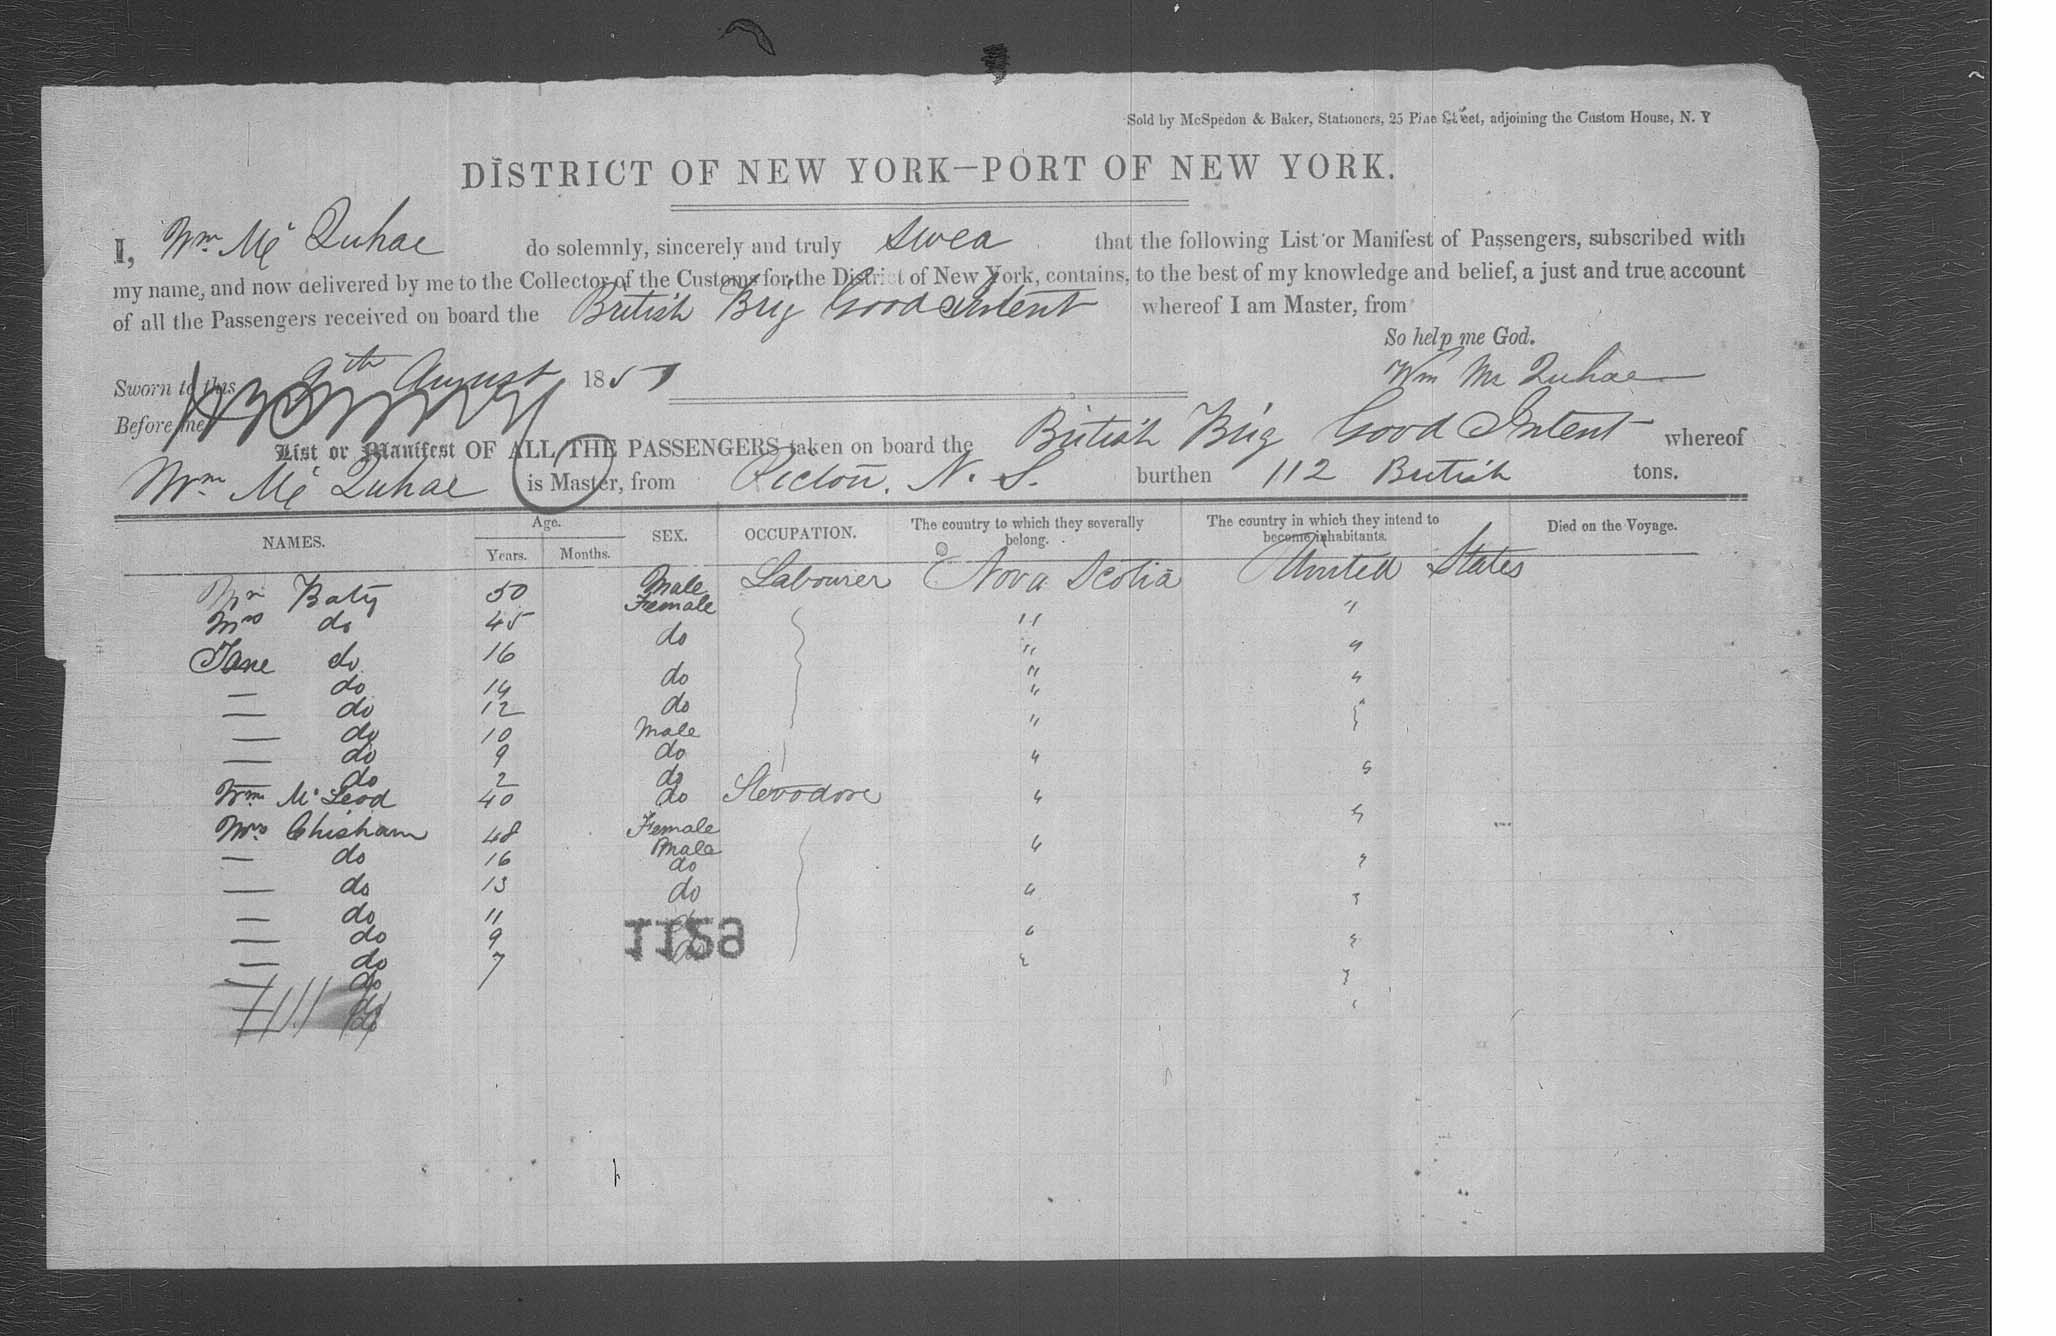 Sold by McSpedon & Baker, Stationers, 25 Pine Street, adjoining the Custom House, N. Y
DISTRICT OF NEW YORK—PORT OF NEW YORK.
I, Wm Mc Quhae do solemnly, sincerely and truly swea that the following List or Manifest of Passengers, subscribed with
my name, and now delivered by me to the Collector of the Customs for the District of New York, contains, to the best of my knowledge and belief, a just and true account
of all the Passengers received on board the British Brig Good Intent whereof I am Master, from
So help me God.
Sworn to this 9th August 1851 Wm Mc Quhae
Before me
List or Manifest OF ALL THE PASSENGERS taken on board the British Brig Good Intent whereof
Wm Mc Quhae is Master, from Pictou. N. S. burthen 112 British tons.
NAMES. Age. Years. Months. SEX. OCCUPATION. The country to which they severally belong. The country in which they intend to become inhabitants. Died on the Voyage.
Wm Baty 50 Male Labourer Nova Scotia United States
Mrs do 45 Female " "
Jane do 16 do " "
— do 14 do " "
— do 12 do "
— do 10 Male "
— do 9 do "
do 2 do
Wm McLeod 40 do Stevodore "
Mrs Chisham 48 Female "
— do 16 Male
— do 13 do
— do 11 do
— do 9
— do 7
— do
1129